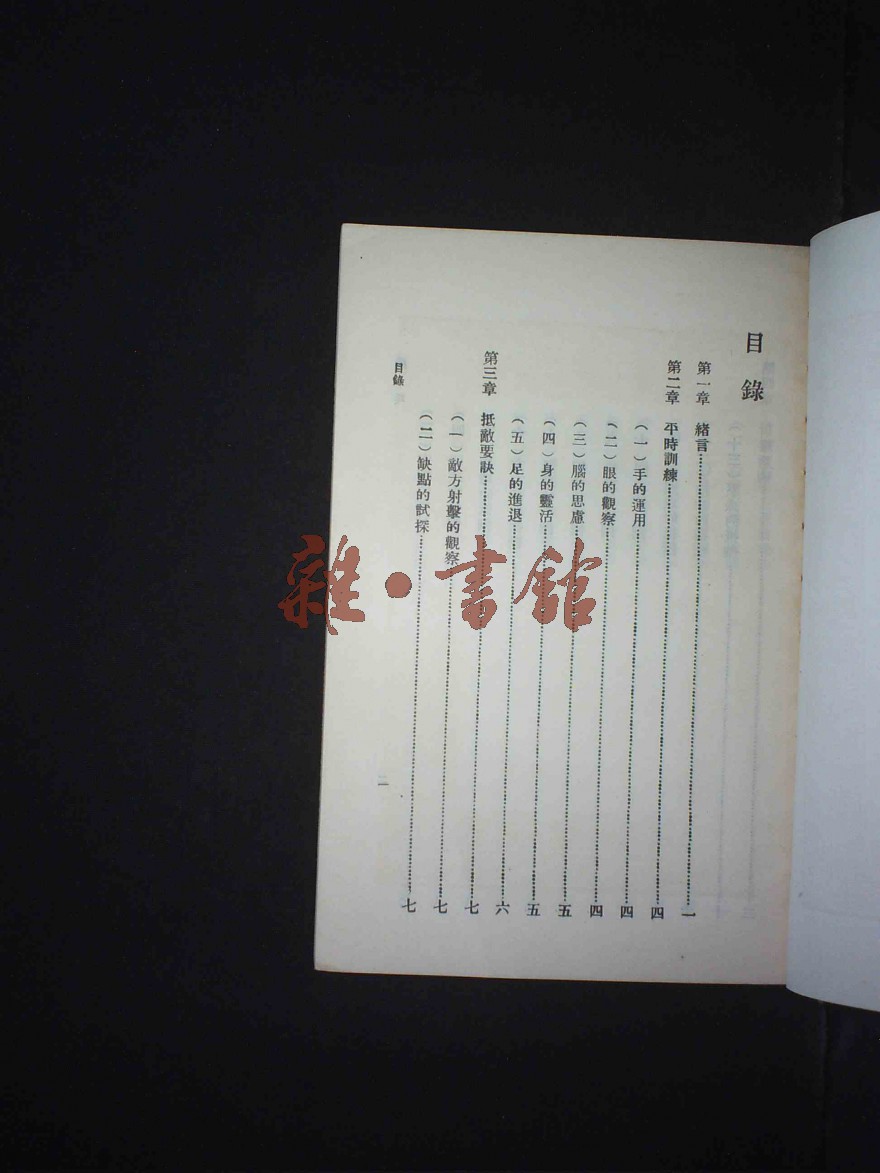 目錄
第一章 緒言……一
第二章 平時訓練……四
（一）手的運用……四
（二）眼的觀察……四
（三）腦的思慮……五
（四）身的靈活……五
（五）足的進退……六
第三章 抵敵要訣……七
（一）敵方射擊的觀察……七
（二）缺點的試探……七
目錄
一
雜·書館